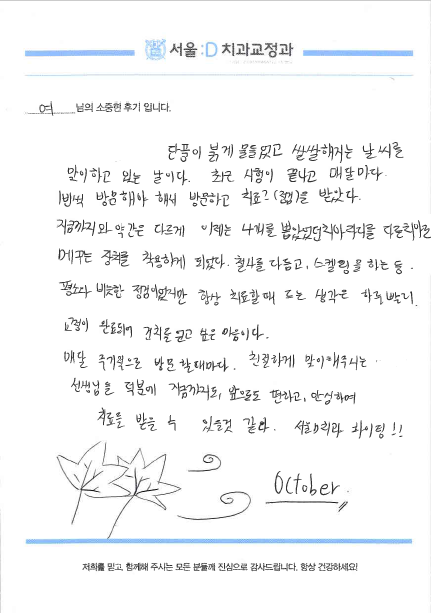 서울:D 치과교정과
여 님의 소중한 후기 입니다.
단풍이 붉게 물들었고 쌀쌀해지는 날씨를
맞이하고 있는 날이다. 최근 시험이 끝나고 매달마다.
1번씩 방문해야 해서 방문하고 치료?(점검)을 받았다.
지금까지와 약간은 다르게 이제는 4개를 뽑았었던 치아자리를 다른치아로
메꾸는 장치를 착용하게 되었다. 철사를 다듬고, 스켈링을 하는 등.
평소와 비슷한 점검이었지만 항상 치료할때 드는 생각은 하루 빨리.
교정이 완료되어 건치를 얻고 싶은 마음이다.
매달 주기적으로 방문할때마다. 친절하게 맞이해주시는
선생님들 덕분에 지금까지도, 앞으로도 편하고, 안심하며
치료를 받을 수 있을것 같다. 서울D치과 화이팅!!
October.
저희를 믿고, 함께해 주시는 모든 분들께 진심으로 감사드립니다. 항상 건강하세요!